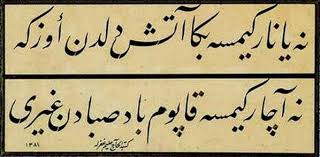 نه یانار کیمسه بکا آتش دلدن أوزکه
نه آچار کیمسه قاپوم باد صبادن غیری
۱۳۸۱